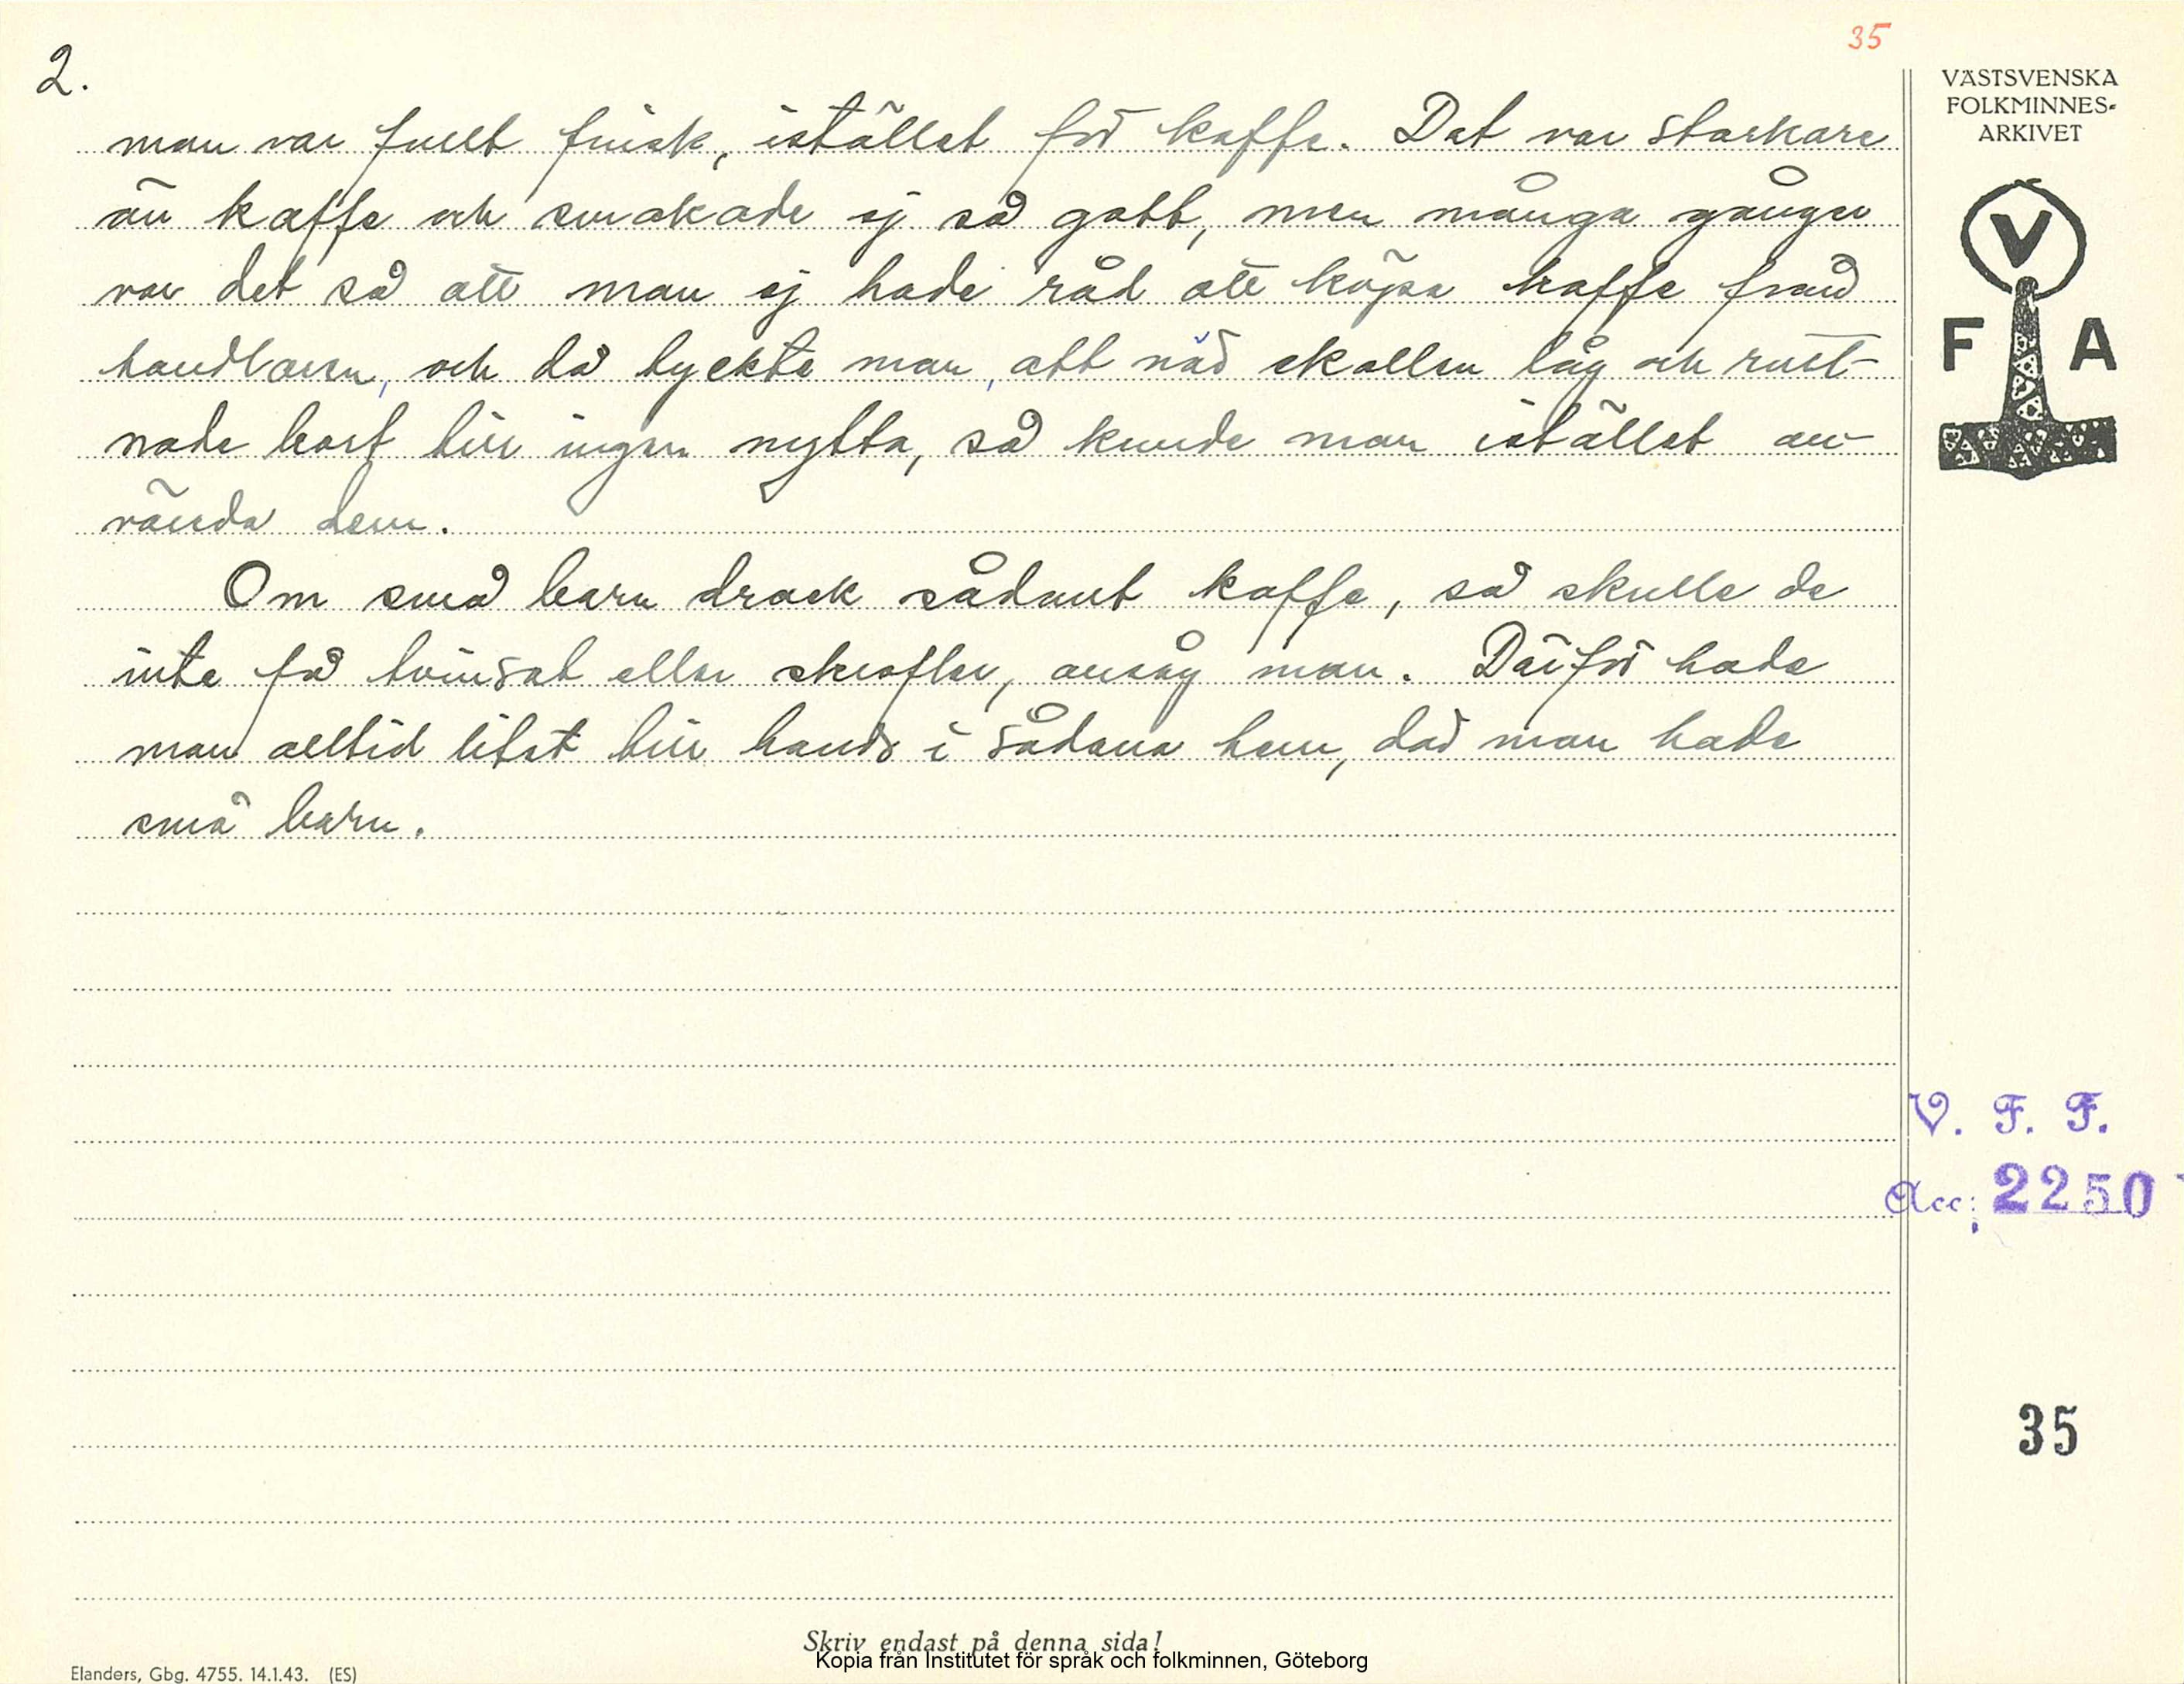 35
2.
VÄSTSVENSKA
FOLKMINNES-
ARKIVET
man var fullt frisk, istället för kaffe. Det var starkare
än kaffe och smakade ej så gott, men många gånger
var det så att man ej hade råd att köpa kaffe från
handlaren, och då tyckte man, att när skallen låg och rutt-
nade bort till ingen nytta, så kunde man istället an-
vända dem.
Om små barn drack sådant kaffe, så skulle de
inte få tvinsot eller skrofler, ansåg man. Därför hade
man alltid litet till hands i sådana hem, där man hade
små barn.
V
F A
V. F. F.
Acc: 2250
35
Skriv endast på denna sida!
Kopia från Institutet för språk och folkminnen, Göteborg
Elanders, Gbg. 4755. 14.1.43. (ES)